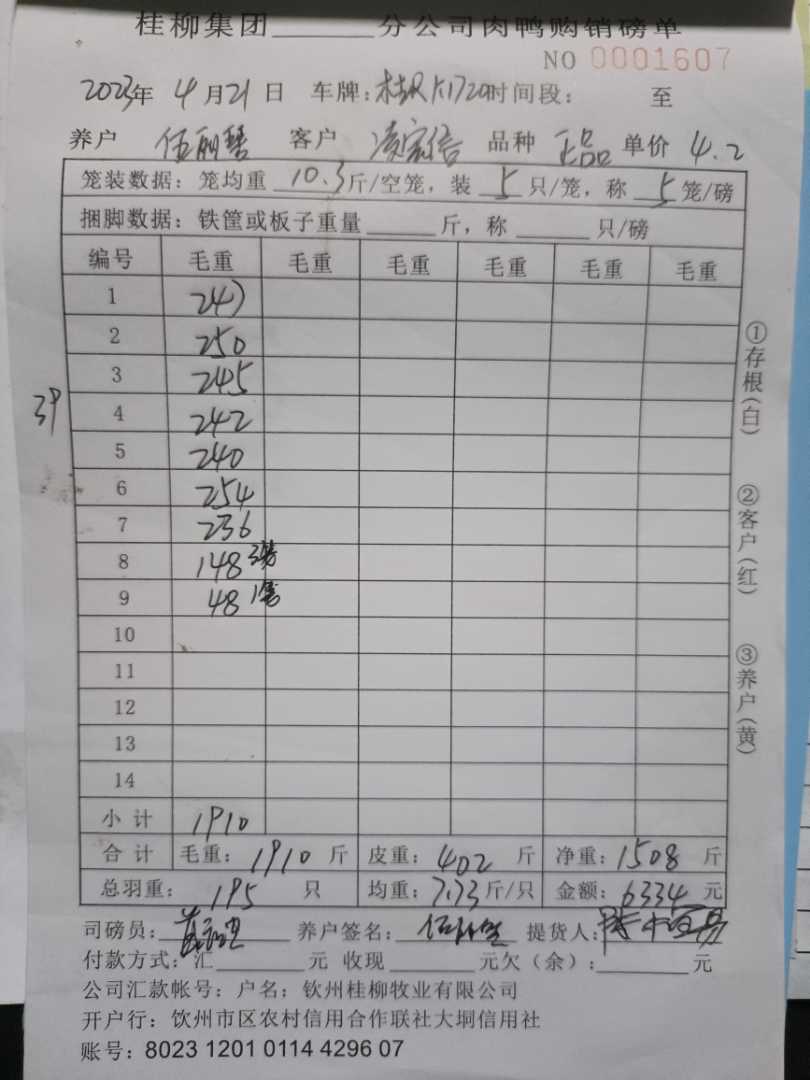 桂柳集团______分公司肉鸭购销磅单
NO 0001607
2023年 4月21日 车牌: 时间段: 至
养户 伍丽琴 客户 凌家倍 品种 正品 单价 4.2
笼装数据: 笼均重 10.3斤/空笼, 装 5 只/笼, 称 5 笼/磅
捆脚数据: 铁筐或板子重量______斤, 称______只/磅
编号 毛重 毛重 毛重 毛重 毛重 毛重
1 247
2 250
3 245
4 242
5 240
6 254
7 236
8 148 3笼
9 48 1笼
10
11
12
13
14
39
小计 1910
合计 毛重: 1910 斤 皮重: 402 斤 净重: 1508 斤
总羽重: 195 只 均重: 7.73斤/只 金额: 6334 元
司磅员: 养户签名: 提货人:
付款方式: 汇______元 收现______元欠(余):______元
公司汇款帐号: 户名; 钦州桂柳牧业有限公司
开户行: 饮州市区农村信用合作联社大垌信用社
账号: 8023 1201 0114 4296 07
①存根(白)
②客户(红)
③养户(黄)